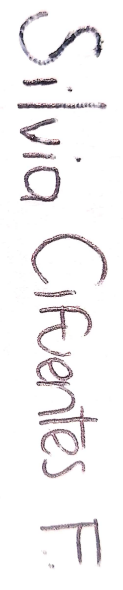 Silvia Cifuentes F.